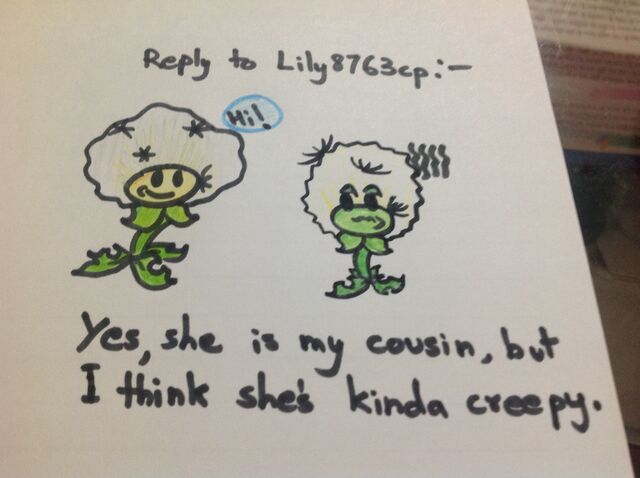 Reply to Lily8763cp:-
Hi!
Yes, she is my cousin, but
I think she's kinda creepy.